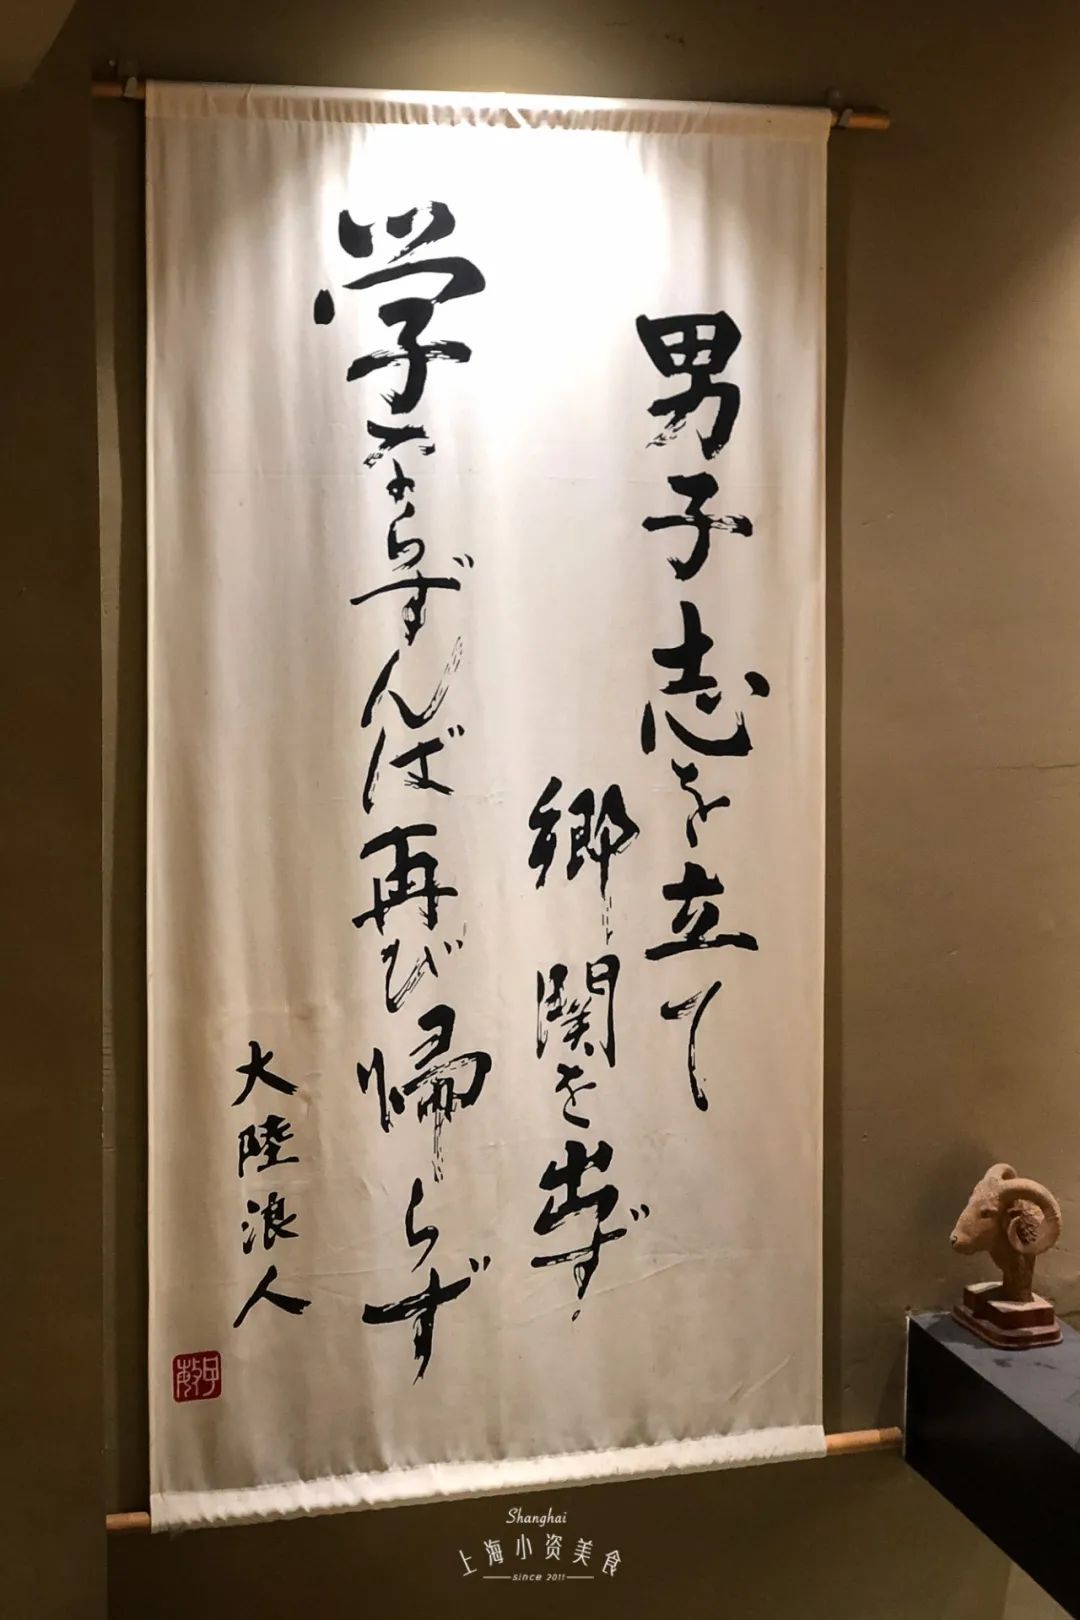 男子志を立て
郷関を出ず
学ならずんば再び帰らず
大陸浪人
Shanghai
上海小资美食
since 2011